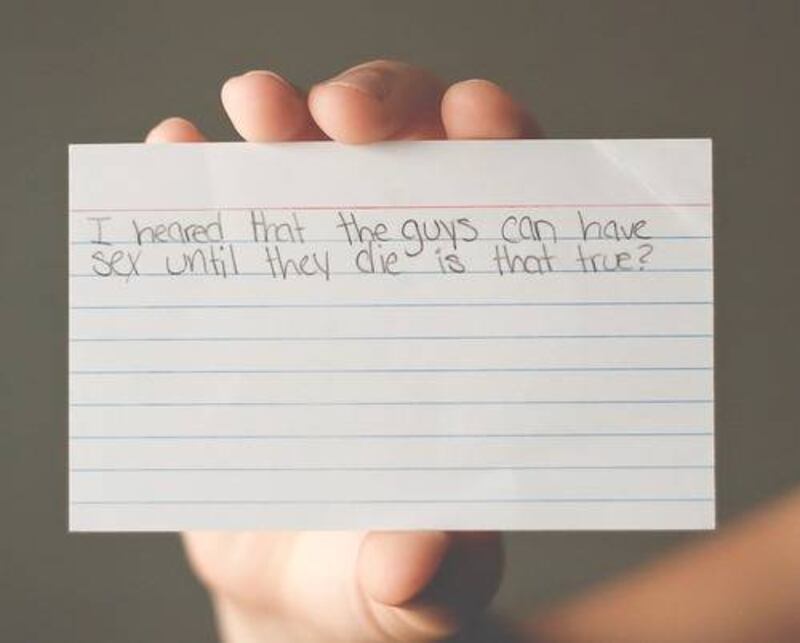 I heared that the guys can have
sex until they die is that true?